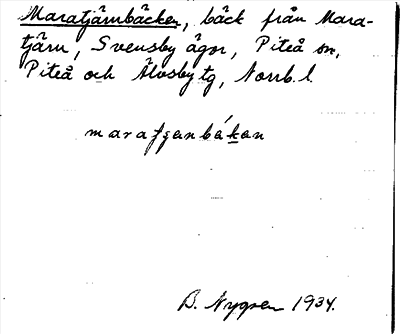 Maratjärnbäcken, bäck från Mara-
tjärn, Svensby ägor, Piteå sn,
Piteå och Älvsby tg, Norrb. l.
B. Nygren 1934.